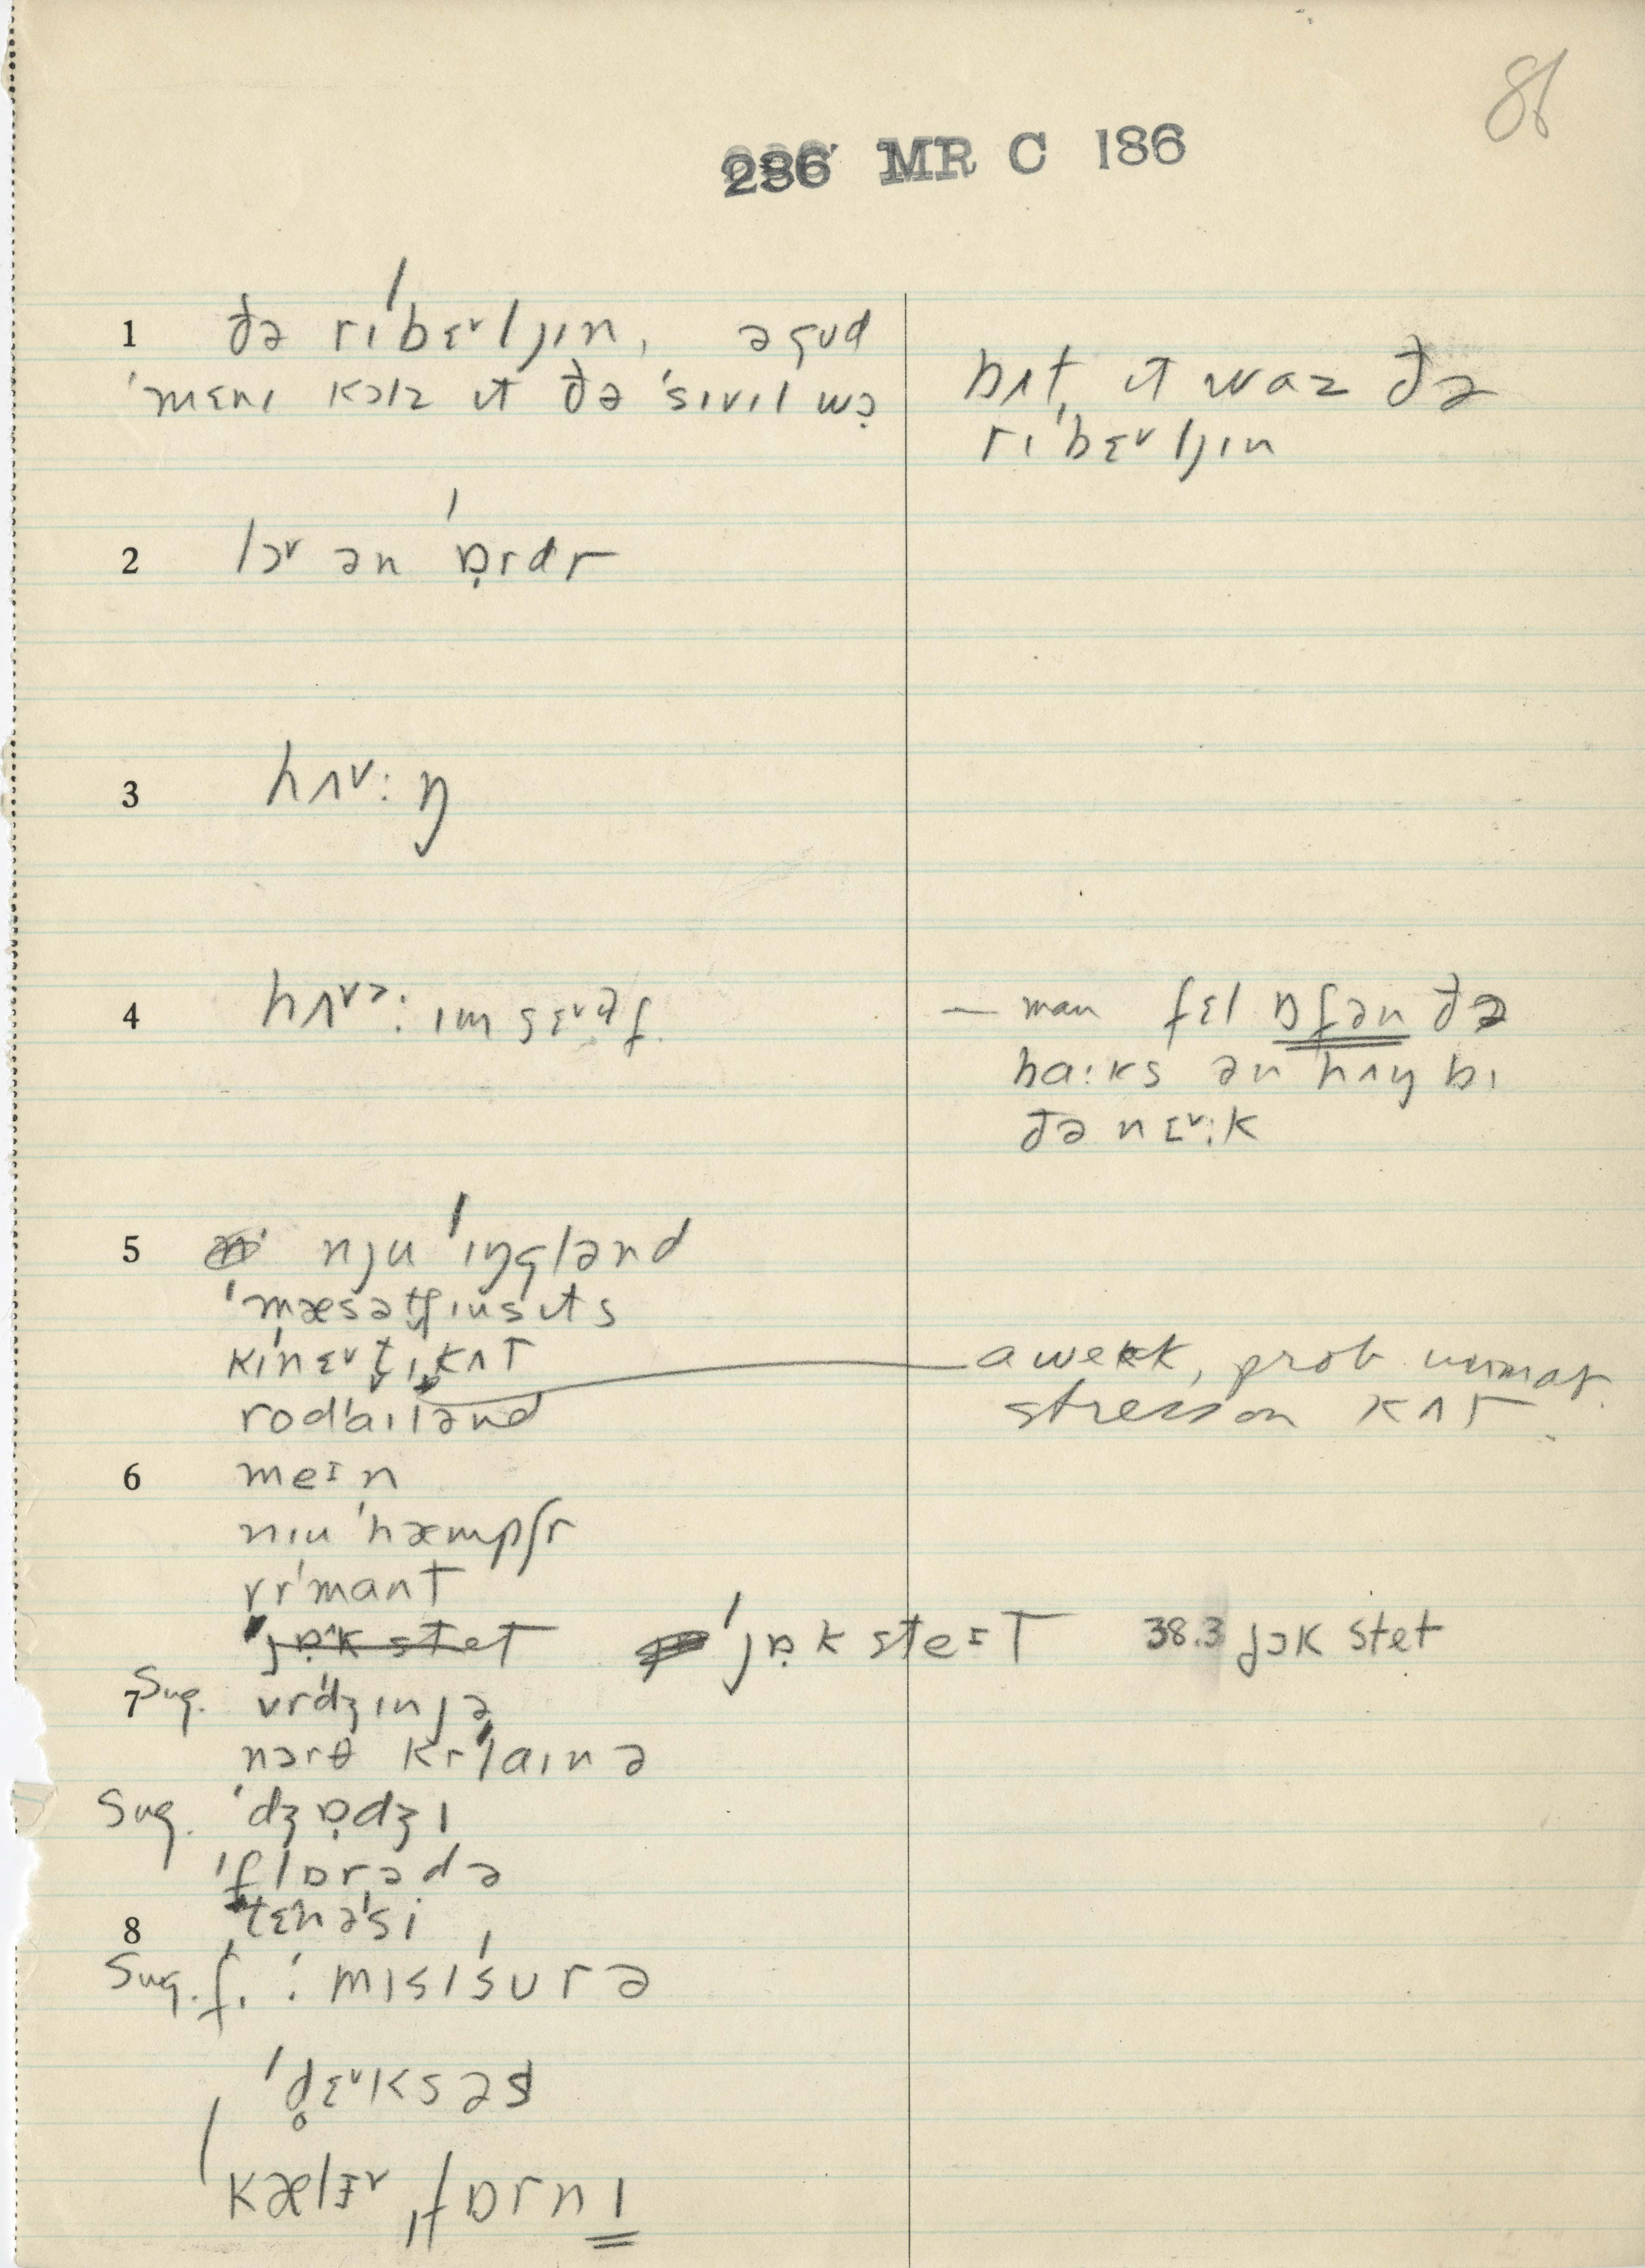 86
286 MR C 186
1 ðə rɪˈbɛ˅ljɪn, ə gud
ˈmɛnɪ kɔlz ɪt ðə ˈsɪvɪl wɔ̣
bʌt, ɪt waz ðə
rɪˈbɛ˅ljɪn
2 lɔ˅ ən ˈɒ̣rdr
3 hʌ˅: ŋ
4 hʌ˅ɔ: ɪmsɛ˅əf
— man fɛl ɒfən ðə
ha:ks ən hʌŋ bɪ
ðə nɛ˅:k
5 nju ˈɪŋglənd
ˈmæsətʃɪusɪts
kɪˈnɛ˅t̬ɪˌkʌt
rodˈaɪlənd
a week, prob. unmar.
stress on kʌt
6 meɪn
nɪu ˈhæmpʃr
vrˈmant
ˈjɒ̣k stet ˈjɒ̣k steɪt 38.3 jɔk stet
7 Sug. vrˈdʒɪnjə
nɔrθ krˈlaɪnə
Sug. ˈdʒɒ̣dʒɪ
ˈflɒrədə
8 tɛnəˈsi
Sug. f. : mɪsɪˈsurə
ˈd̥ɛ˅ksəs
ˈkælɪ˅ˌfɒrnɪ